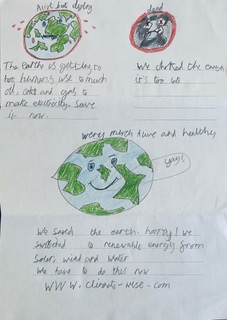 Alive but dying
dead
The Earth is getting to
hot humans use to much
oil, coal and gas to
make electricity. Save
it now.
We choked the earth
it's too late
very much alive and healthey
yay!
We saved the earth. horray! We
switched to renewable energy from
Solar, wind and water
We have to do this now
WWW.climate-wise.com